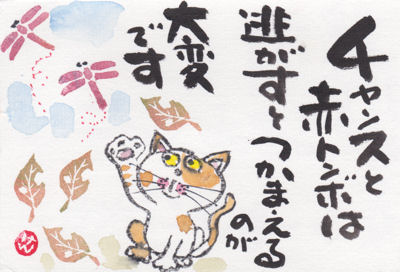 チャンスと
赤トンボは
逃がすと
つかまえる
のが
大変
です